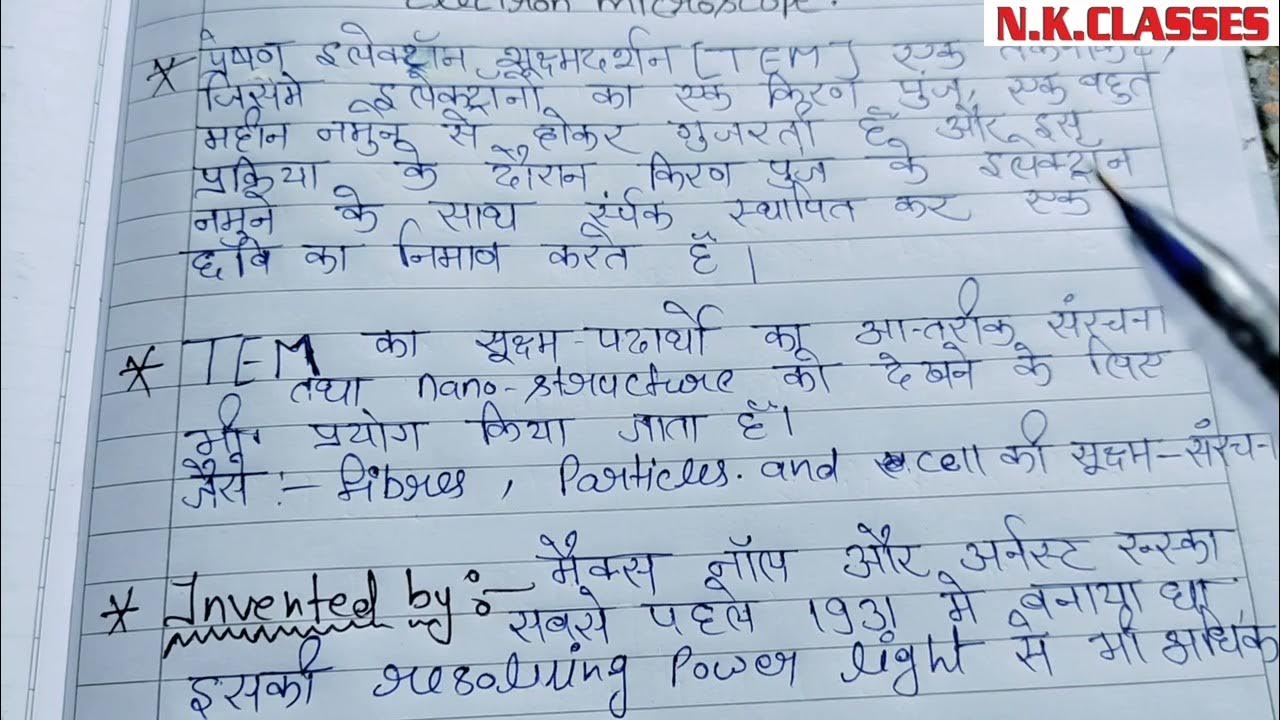 N.K.CLASSES
Electron microscope.
* प्रेषण इलेक्ट्रॉन सूक्ष्मदर्शन [TEM] एक
जिसमे इलेक्ट्रानो का एक किरण पुंज, एक बहुत
महीन नमुने से होकर गुजरती है और इस
प्रक्रिया के दौरान किरण पुंज के इलेक्ट्रान
नमूने के साथ स्थापित कर एक
छवि का निमाण करते हैं।
* TEM का सूक्ष्म-पदार्थो का आन्तरीक संरचना
तथा nano-structure को देखने के लिए
भी प्रयोग किया जाता हैं।
जैसे :- fibres, Particles. and cell की सूक्ष्म-संरच
* Invented by :- मैक्स नॉल और अर्नस्ट रुस्का
सबसे पहले 1931 मे बनाया था
इसकी resolving Power light से भी अधिक